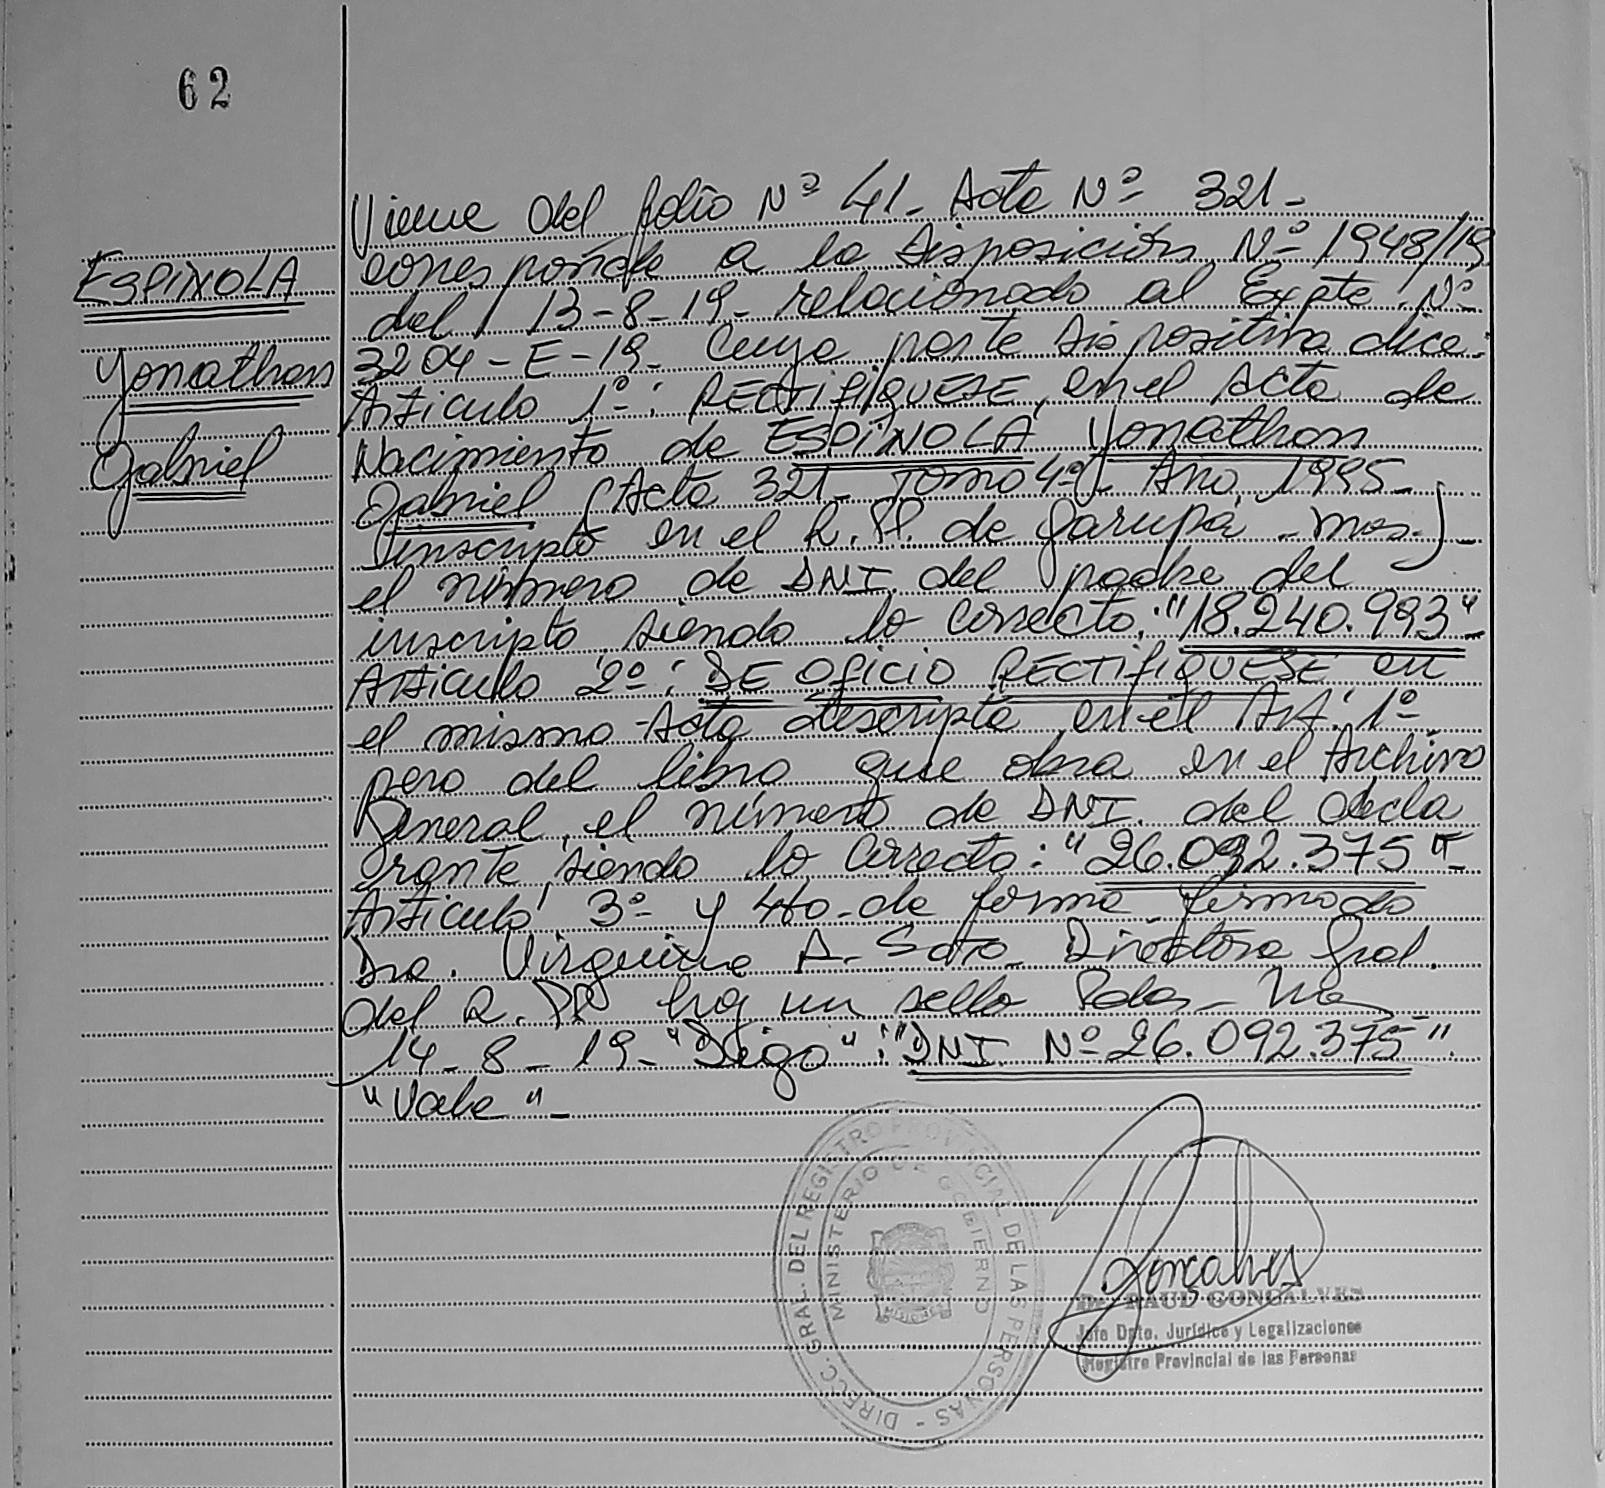 62
Viene del folio Nº 41- Acta Nº 321-
corresponde a la Disposición Nº 1948/19
del 13-8-19- relacionado al Expte. Nº
3204-E-19- Cuya parte dispositiva dice:
Artículo 1º: RECTIFIQUESE, en el Acta de
Nacimiento de ESPÍNOLA Yonathan
Gabriel (Acta 321- Tomo 4º- Año 1995-
inscripto en el R.P. de Garupá -Mnes.)-
el número de DNI del padre del
inscripto, siendo lo correcto: "18.240.993"-
Artículo 2º: DE OFICIO RECTIFIQUESE en
el mismo Acta descripta en el Art. 1º
pero del libro que obra en el Archivo
General, el número de DNI. del decla
rante, siendo lo correcto: "26.092.375"-
Artículo 3º y 4to- de forma- firmado
Dra. Virginia A. Soto- Directora Gral.
del R.PP hay un sello Pdas- Mnes
14-8-19- "Digo": "DNI Nº 26.092.375"
"Vale"-
ESPINOLA
Yonathan
Gabriel
DIRECC. GRAL. DEL REGISTRO PROVINCIAL DE LAS PERSONAS -
MINISTERIO DE GOBIERNO
Gonçalves
Dr. RAUL GONCALVES
Jefe Dpto. Jurídico y Legalizaciones
Registro Provincial de las Personas